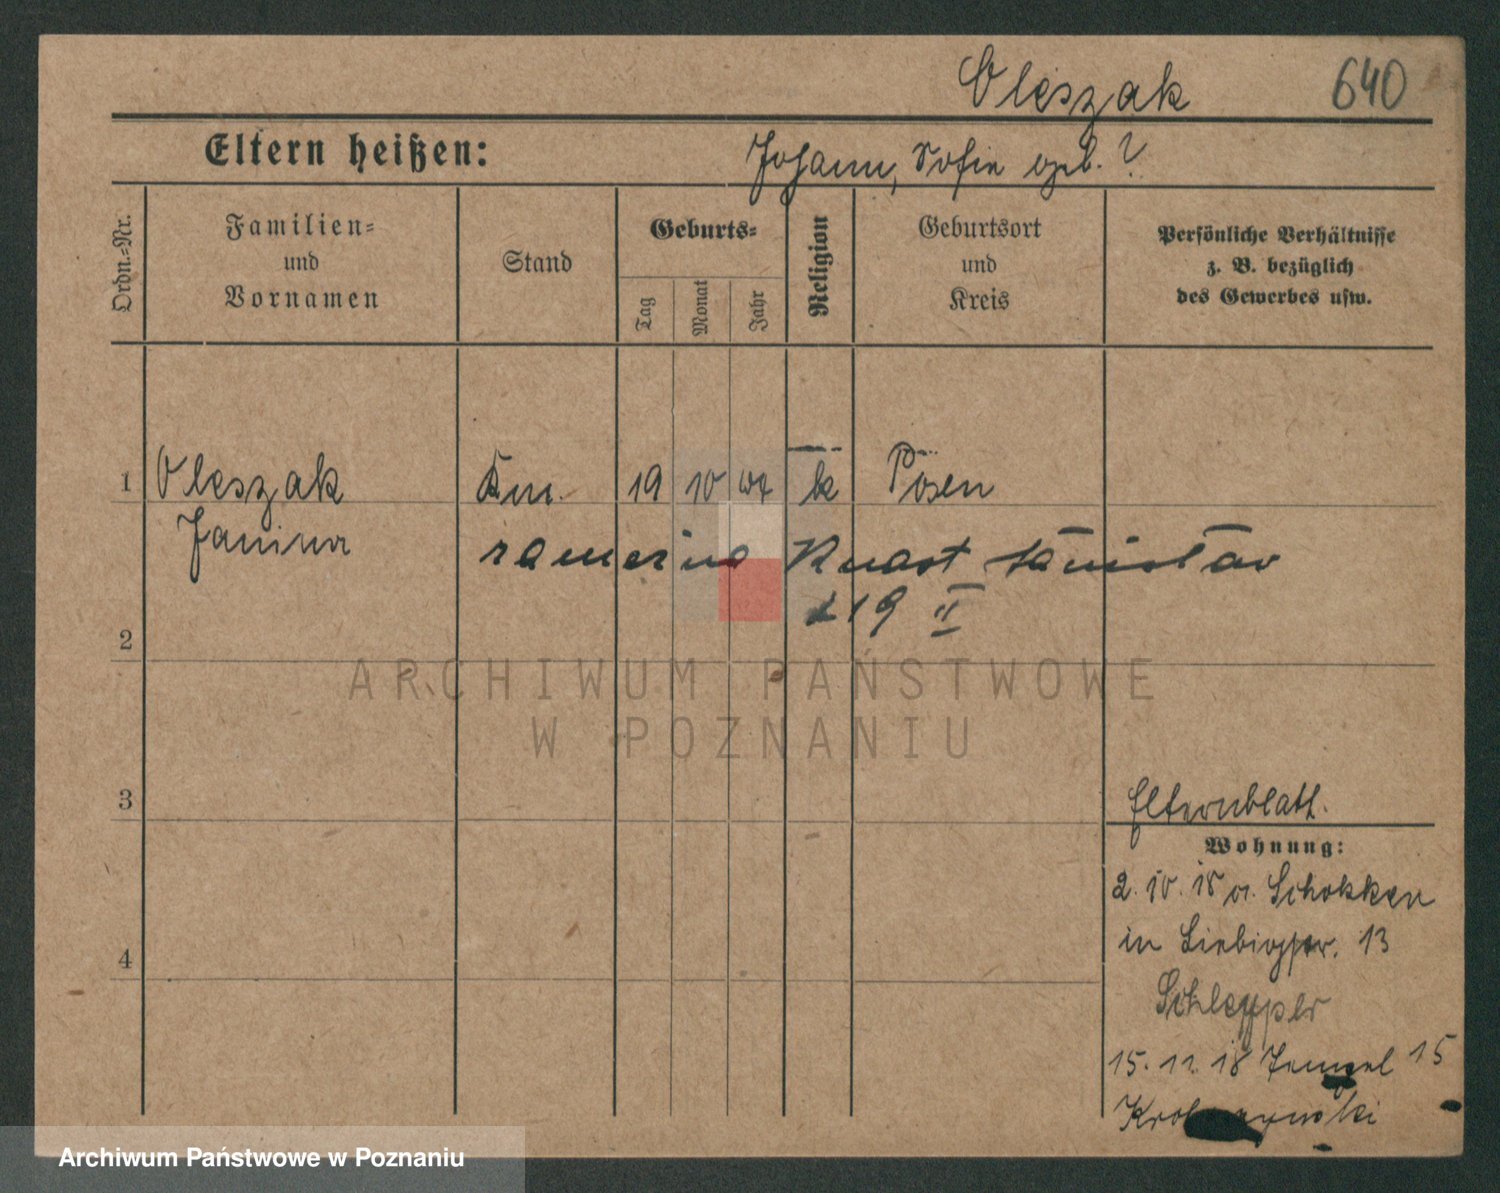 Oleszak 640
Eltern heißen: Johann, Sofie geb. ?
Ordn.=Nr.
Familien=
und
Vornamen
Stand
Geburts=
Tag
Monat
Jahr
Religion
Geburtsort
und
Kreis
Persönliche Verhältnisse
z. B. bezüglich
des Gewerbes usw.
1 Oleszak 19 10 k Posen
Janina
Knast
19 II
2
3
4
Elternblatt.
Wohnung:
2. 10. 18 a. Schokken
in Liebigstr. 13
Schleppler
15. 11. 18 15
ARCHIWUM PAŃSTWOWE
W POZNANIU
Archiwum Państwowe w Poznaniu